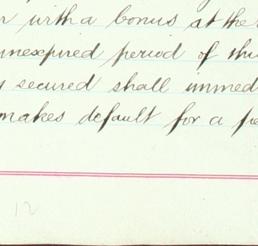 with a bonus at the
unexpired period of this
secured shall immed
makes default for a pe
12